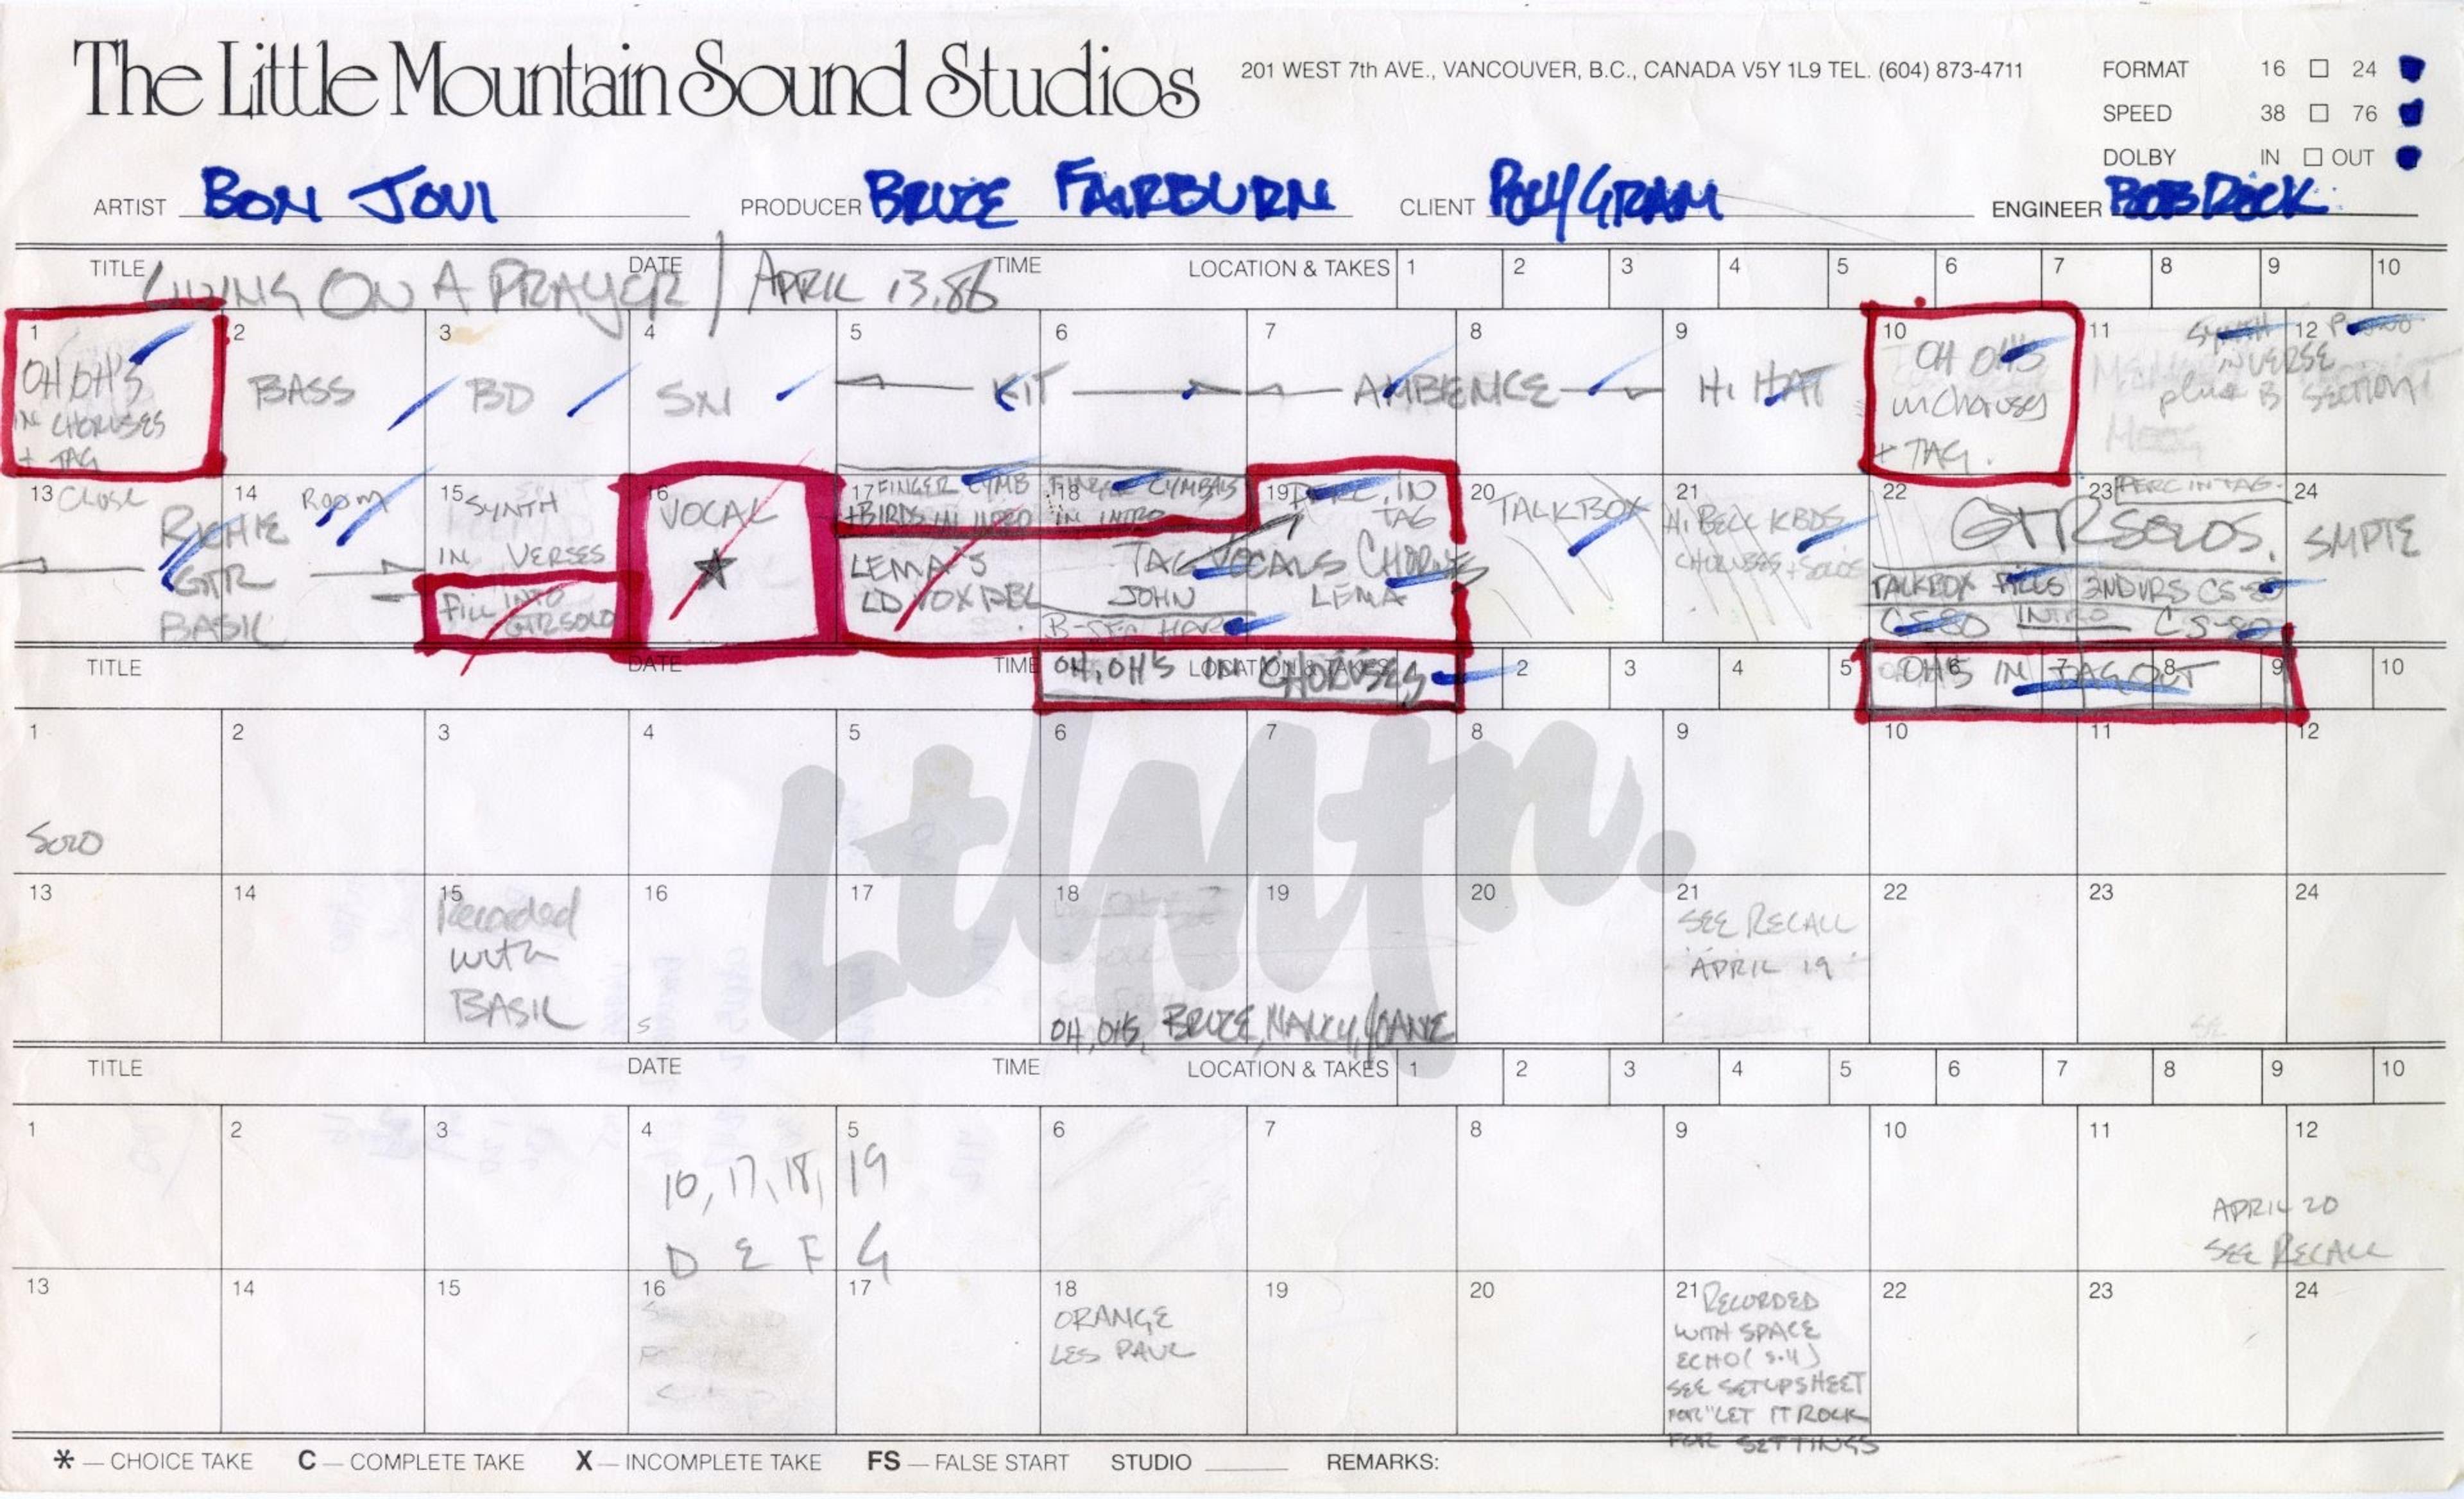 The Little Mountain Sound Studios
201 WEST 7th AVE., VANCOUVER, B.C., CANADA V5Y 1L9 TEL. (604) 873-4711
FORMAT 16 □ 24
SPEED 38 □ 76
DOLBY IN □ OUT
ARTIST BON JOVI PRODUCER BRUCE FAIRBURN CLIENT POLYGRAM ENGINEER BOB ROCK
TITLE LIVING ON A PRAYER / DATE APRIL 13.86 TIME LOCATION & TAKES 1 2 3 4 5 6 7 8 9 10
1 OH OH'S
IN CHORUSES
+ TAG
2 BASS
3 BD
4 SN
5 KIT 6
7 AMBIENCE 8
9 HI HAT
10 OH OH'S
in Choruses
+ TAG.
11 SYNTH 12 PIANO
IN VERSE
plus B SECTION
MOOG
13 CLOSE 14 ROOM
RICHIE
GTR
BASIC
15 SYNTH
IN VERSES
FILL INTO
GTR SOLO
16 VOCAL
★
17 FINGER CYMB
+BIRDS IN INTRO
18 FINGER CYMBALS
IN INTRO
19 PERC. IN
TAG
LEMA'S
LD VOX DBL
TAG VOCALS CHORUS
JOHN LEMA
B-SEC HARM
20 TALKBOX
21 HI BELL KBDS
CHORUSES + SOLOS
22 23 PERC IN TAG.
GTR SOLOS.
TALKBOX FILLS 2ND VRS CS-80
CS-80 INTRO CS-80
24 SMPTE
TITLE DATE TIME OH, OH'S IN CHORUSES LOCATION & TAKES 2 3 4 5 OH'S IN TAG OUT 6 7 8 9 10
1 2 3 4 5 6 7 8 9 10 11 12
SOLO
13 14 15 16 17 18 19 20 21 22 23 24
Recorded
with
BASIC
S
OH, OH'S, BRUCE, NANCY, JOANE
SEE RECALL
APRIL 19
LtlMtn.
TITLE DATE TIME LOCATION & TAKES 1 2 3 4 5 6 7 8 9 10
1 2 3 4 5 6 7 8 9 10 11 12
10, 17, 18, 19
D E F G
APRIL 20
SEE RECALL
13 14 15 16 17 18 19 20 21 22 23 24
ORANGE
LES PAUL
RECORDED
WITH SPACE
ECHO
SEE SETUP SHEET
FOR "LET IT ROCK
FOR SETTINGS
* — CHOICE TAKE C — COMPLETE TAKE X — INCOMPLETE TAKE FS — FALSE START STUDIO REMARKS: